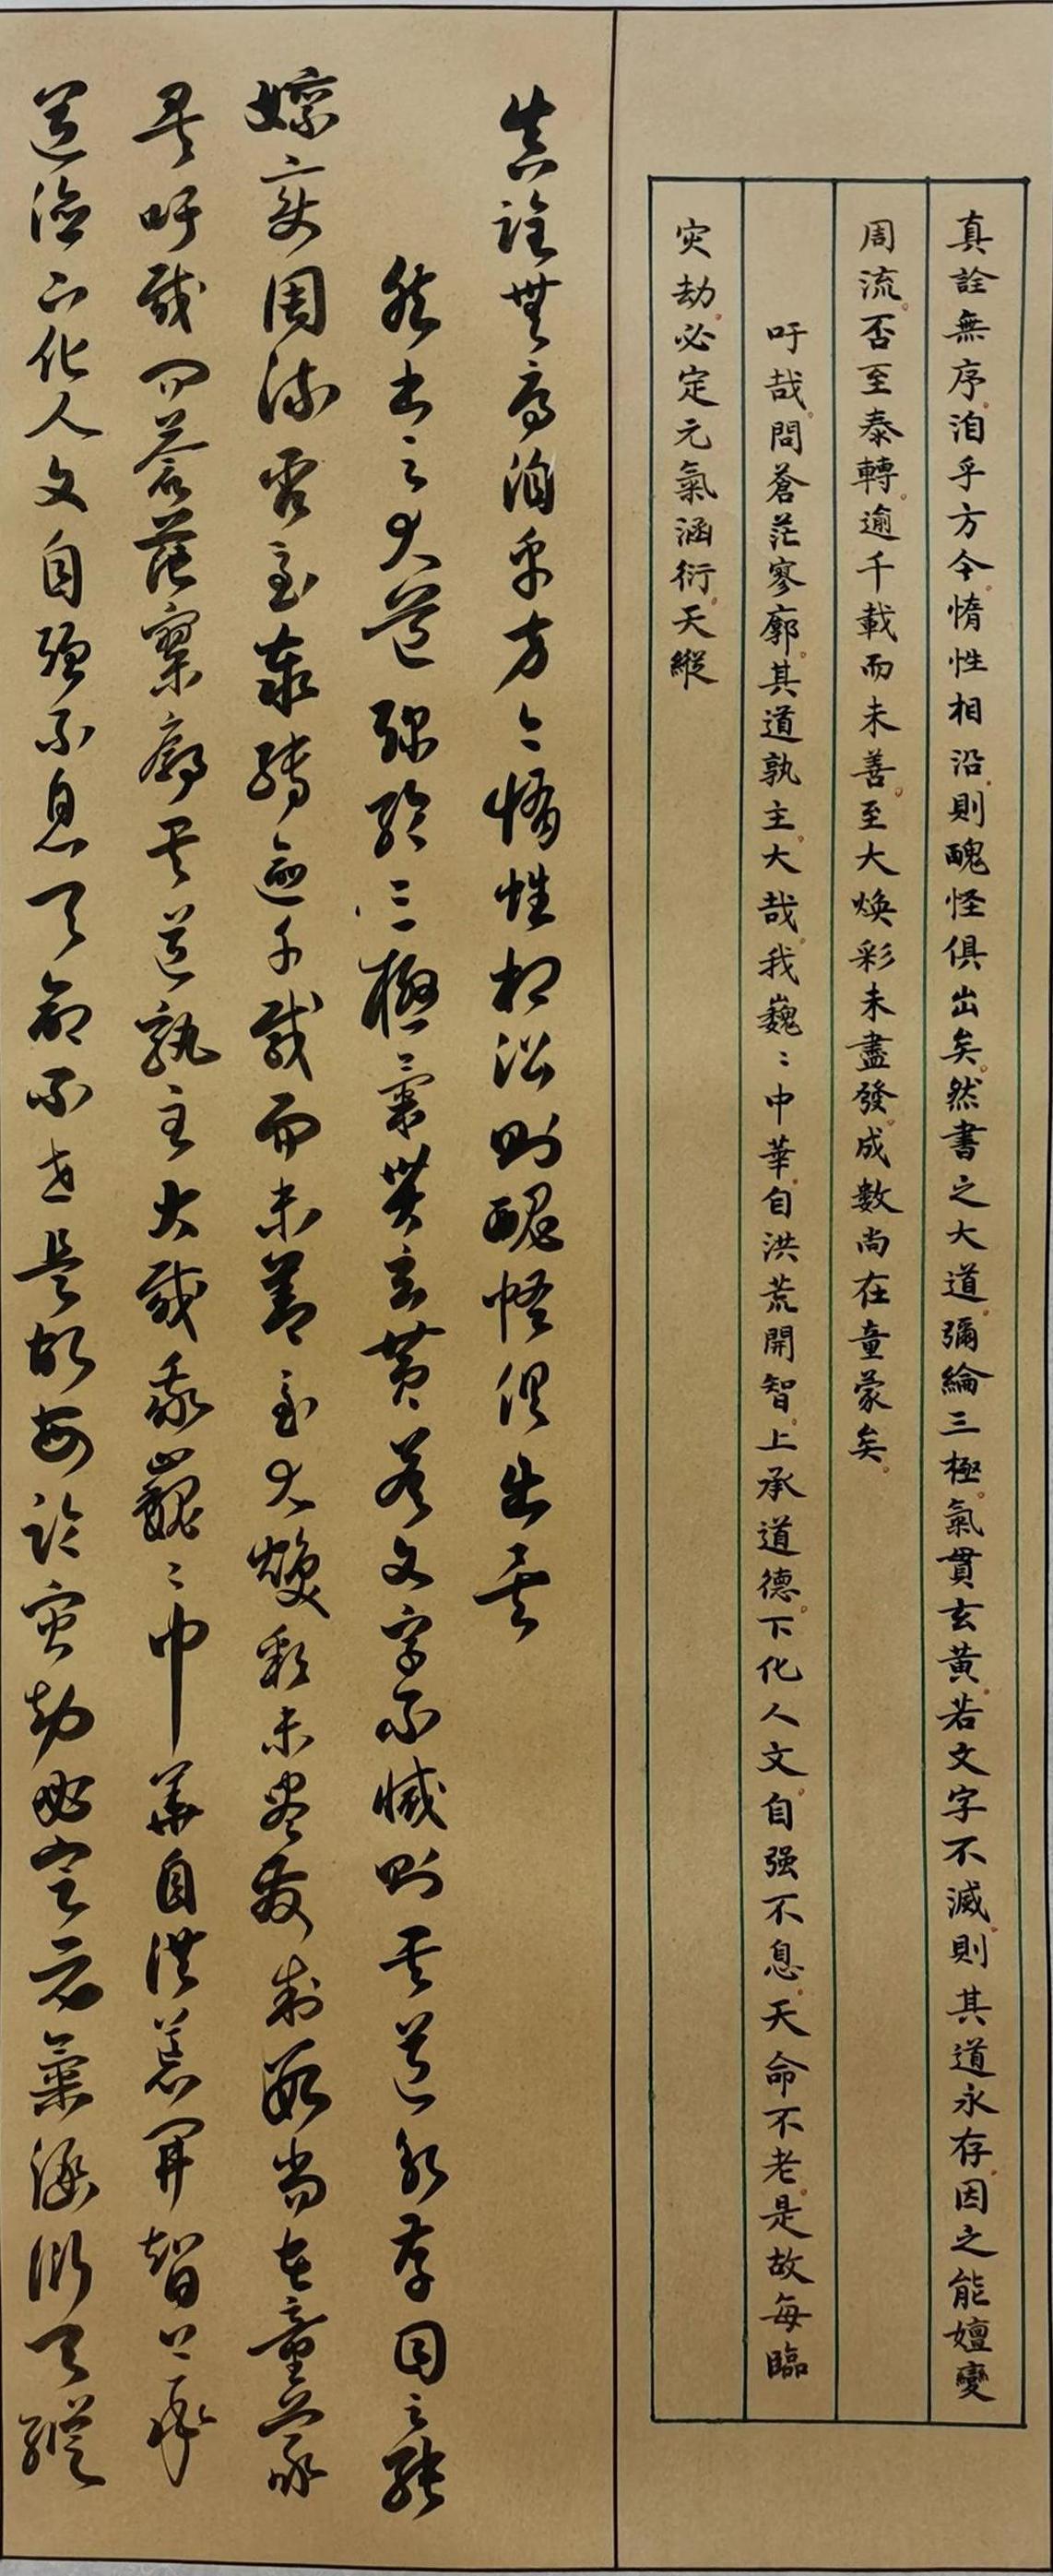 真詮無序洎乎方今惰性相沿則醜怪俱出矣然書之大道彌綸三極氣貫玄黃若文字不滅則其道永存因之能嬗變
周流否至泰轉逾千載而未善至大煥彩未盡發成數尚在童蒙矣
吁哉問蒼茫寥廓其道孰主大哉我巍〻中華自洪荒開智上承道德下化人文自强不息天命不老是故每臨
灾劫必定元氣涵衍天縱
真詮無序洎乎方今惰性相沿則醜怪俱出矣
然書之大道彌綸三極氣貫玄黃若文字不滅則其道永存因之能
嬗變周流否至泰轉逾千載而未善至大煥彩未盡發成數尚在童蒙
矣吁哉問蒼茫寥廓其道孰主大哉我巍〻中華自洪荒開智上承
道德下化人文自强不息天命不老是故每臨灾劫必定元氣涵衍天縱